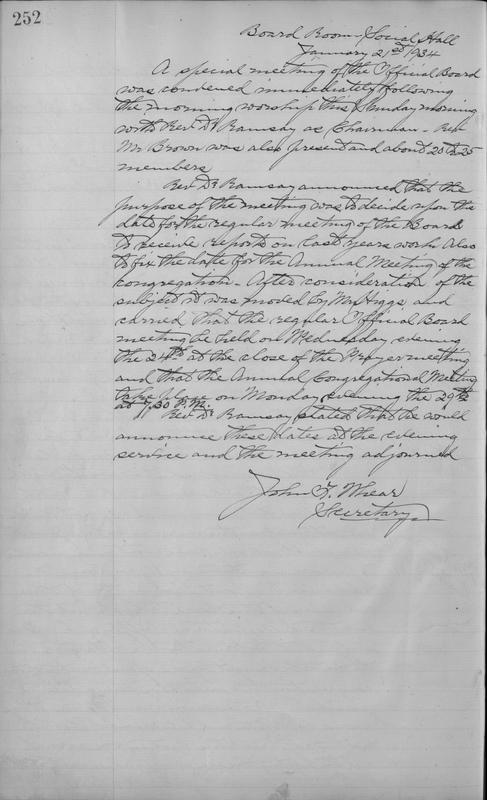 252
Board Room - Social Hall
January 21st 1934
A special meeting of the Official Board
was convened immediately following
the morning worship this Sunday morning
with Rev Dr Ramsay as Chairman - Rev
Mr Brown was also present and about 20 to 25
members
Rev Dr Ramsay announced that the
purpose of the meeting was to decide upon the
date for the regular meeting of the Board
to receive reports on last years work also
to fix the date for the Annual Meeting of the
congregation - After consideration of the
subject it was moved by Mr Higgs and
carried that the regular Official Board
meeting be held on Wednesday evening
the 24th at the close of the Prayer meeting
and that the Annual Congregational Meeting
take place on Monday evening the 29th
at 7.30 P.M.
Rev Dr Ramsay stated that he would
announce these dates at the evening
service and the meeting adjourned
John F. Whear
Secretary